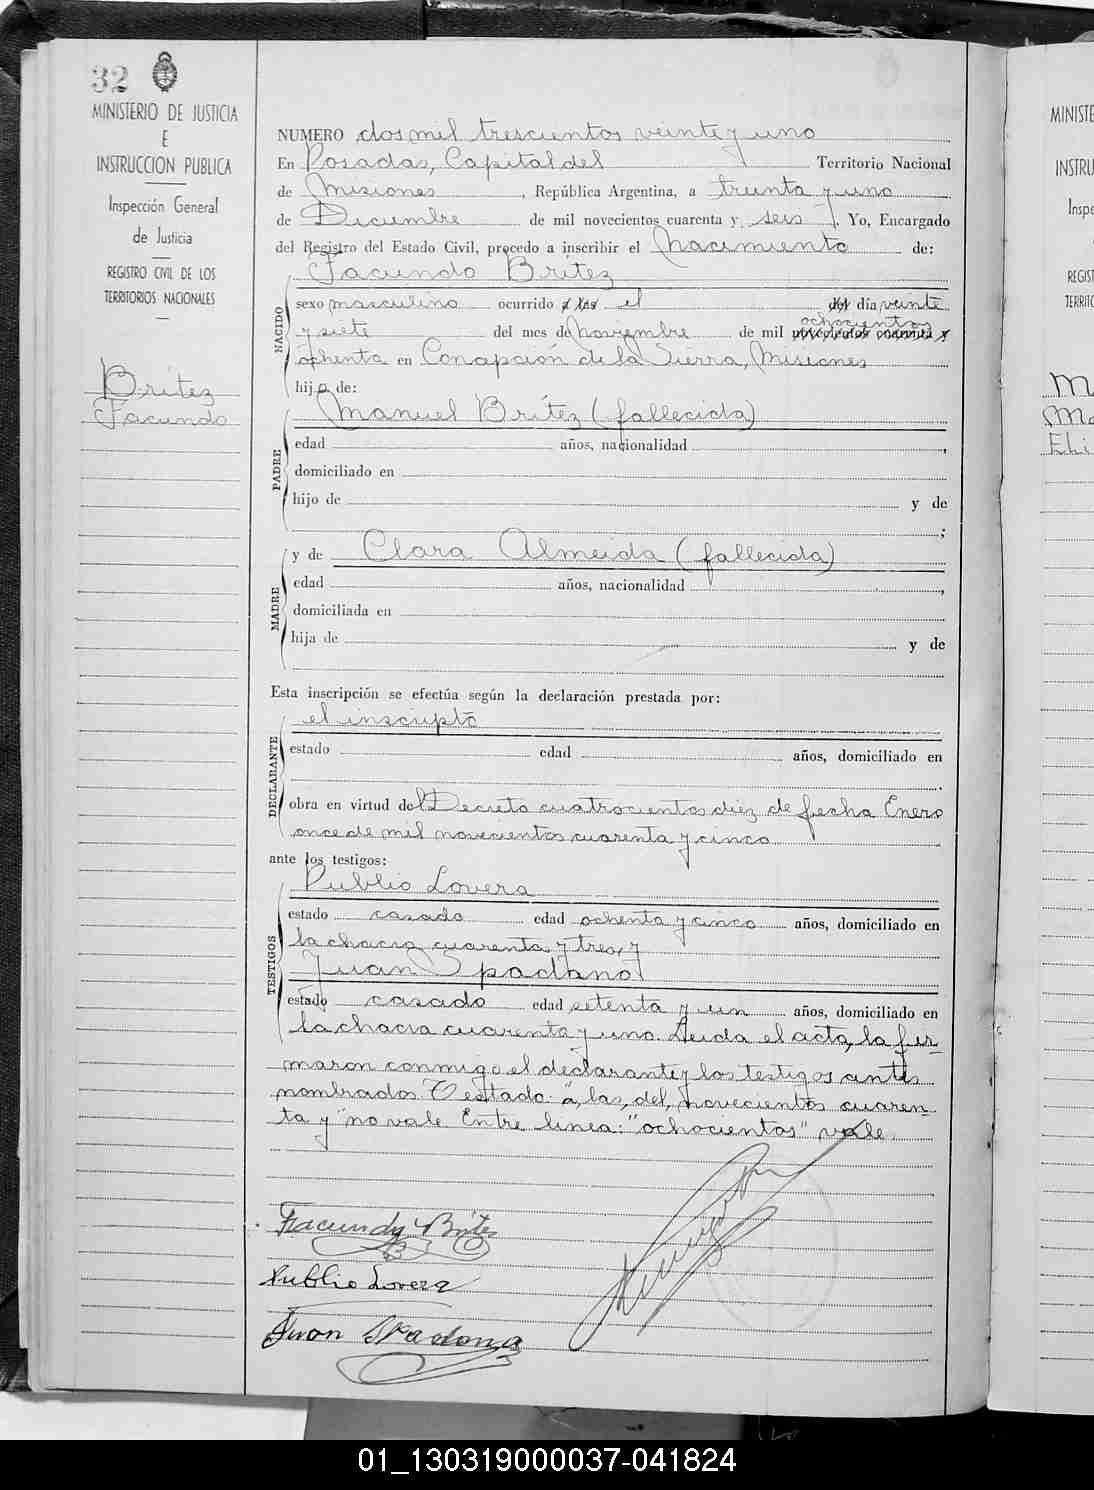 32
MINISTERIO DE JUSTICIA
E
INSTRUCCION PUBLICA
Inspección General
de Justicia
REGISTRO CIVIL DE LOS
TERRITORIOS NACIONALES
Brítez
Facundo
NUMERO dos mil trescientos veinte y uno
En Posadas, Capital del Territorio Nacional
de Misiones, República Argentina, a treinta y uno
de Diciembre de mil novecientos cuarenta y seis. Yo, Encargado
del Registro del Estado Civil, procedo a inscribir el Nacimiento de:
Facundo Brítez
NACIDO
sexo masculino ocurrido a las el del día veinte
ochocientos
y siete del mes de noviembre de mil novecientos cuarenta y
ochenta en Concepción de la Sierra, Misiones
hijo de:
Manuel Brítez (fallecido)
PADRE
edad años, nacionalidad
domiciliado en
hijo de y de
;
y de Clara Almeida (fallecida)
MADRE
edad años, nacionalidad
domiciliada en
hija de y de
Esta inscripción se efectúa según la declaración prestada por:
el inscripto
DECLARANTE
estado edad años, domiciliado en
obra en virtud del Decreto cuatrocientos diez de fecha Enero
once de mil novecientos cuarenta y cinco
ante los testigos:
Publio Lovera
TESTIGOS
estado casado edad ochenta y cinco años, domiciliado en
la chacra cuarenta y tres, y
Juan Spadono
estado casado edad setenta y un años, domiciliado en
la chacra cuarenta y uno. Leida el acta, la fir-
maron conmigo el declarante y los testigos antes
nombrados. Testado: "a, las, del, novecientos cuaren-
ta y" no vale. Entre linea: "ochocientos" vale.
Facundo Brites
Publio Lovera
Juan Spadona
MINISTE
INSTRU
Inspe
REGIST
TERRITO
M
Ma
Eli
01_130319000037-041824